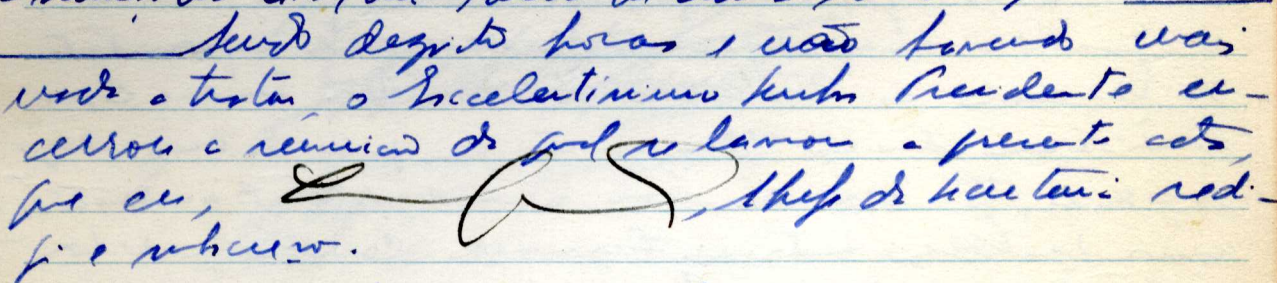 Sendo dezoito horas e não havendo mais
nada a tratar, o Excelentíssimo Senhor Presidente en-
cerrou a reunião da qual se lavrou a presente acta,
que eu, , Chefe da Secretaria redi-
gi e subscrevo.